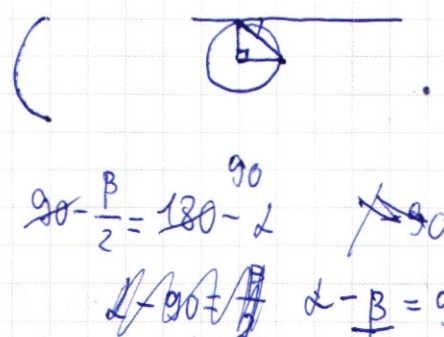 90
90 - β/2 = 180 - α
90
α - 90 = β/2 α - β = 9